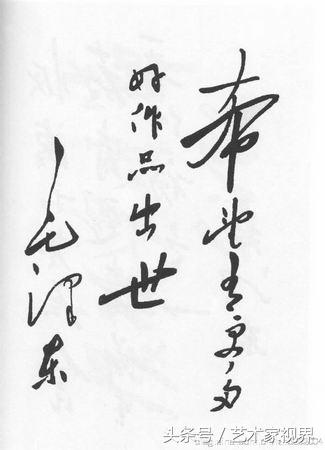 希望有更多
好作品出世
毛泽东
头条号／艺术家视界